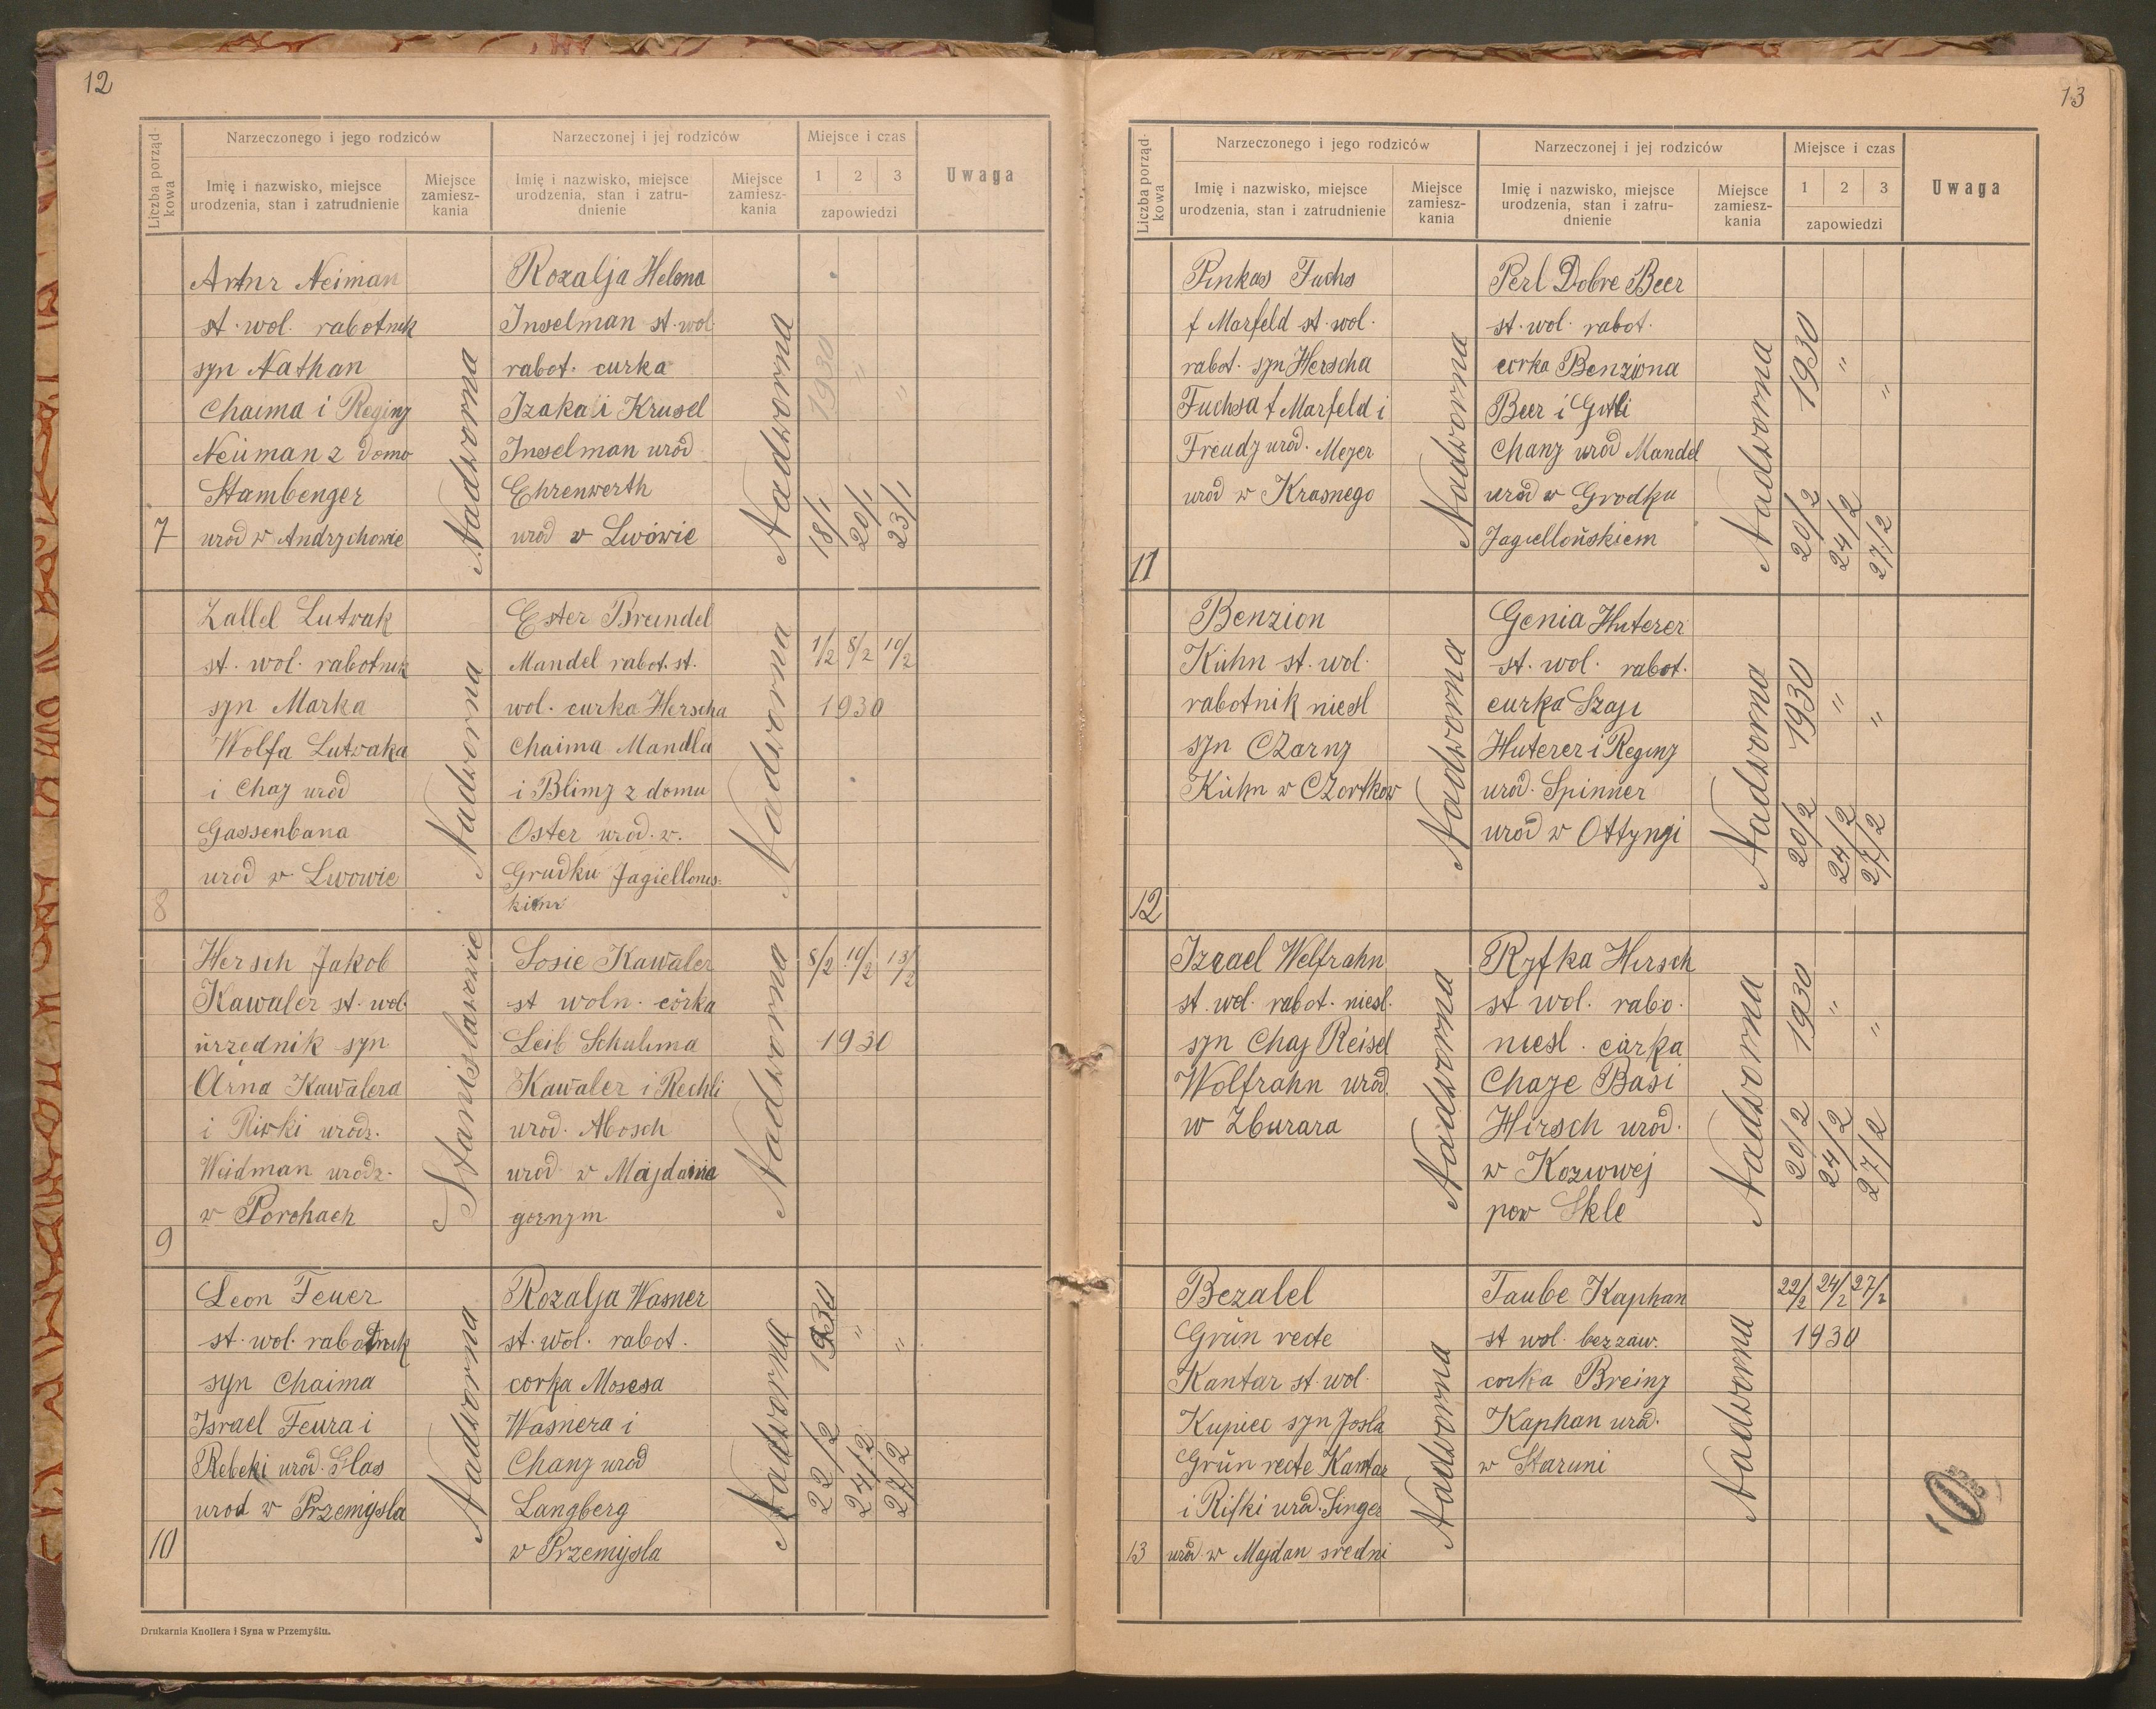 12
Liczba porząd-
kowa
Narzeczonego i jego rodziców
Narzeczonej i jej rodziców
Miejsce i czas
Uwaga
Imię i nazwisko, miejsce
urodzenia, stan i zatrudnienie
Miejsce
zamiesz-
kania
Imię i nazwisko, miejsce
urodzenia, stan i zatru-
dnienie
Miejsce
zamiesz-
kania
1 2 3
zapowiedzi
7
Artur Neiman
st. wol. rabotnik
syn Nathan
Chaima i Reginy
Neuman z domo
Stambenger
urod w Andrychowie
Nadworna
Rozalja Helena
Inselman st. wol.
rabot. curka
Izaka i Krusel
Inselman urod
Ehrenwerth
urod w Lwówie
Nadworna
1930 " "
18/1 20/1 23/1
8
Zallel Lutwak
st. wol. rabotnik
syn Marka
Wolfa Lutwaka
i Chay urod
Gassenbana
urod w Lwowie
Nadworna
Ester Breindel
Mandel rabot. st.
wol. curka Herscha
Chaima Mandla
i Blimy z domu
Oster urod. w.
Grudku Jagiellons-
kiem
Nadworna
1/2 8/2 10/2
1930
9
Hersch Jakob
Kawaler st. wol.
urzednik syn
Arna Kawalera
i Riwki urodz.
Weidman urodz.
w Porohach
Stanislawowie
Sosie Kawaler
st woln. córka
Leib Schulima
Kawaler i Rechli
urod. Abosch
urod w Majdanie
gornym
Nadworna
8/2 10/2 13/2
1930
10
Leon Feuer
st. wol. rabotnik
syn Chaima
Israel Feura i
Rebeki urod. Glas
urod w Przemysla
Nadworna
Rozalja Wasner
st. wol. rabot.
corka Mosesa
Wasnera i
Chany urod
Langberg
w Przemysla
Nadworna
1930 " "
22/2 24/2 27/2
Drukarnia Knollera i Syna w Przemyślu.
13
Liczba porząd-
kowa
Narzeczonego i jego rodziców
Narzeczonej i jej rodziców
Miejsce i czas
Uwaga
Imię i nazwisko, miejsce
urodzenia, stan i zatrudnienie
Miejsce
zamiesz-
kania
Imię i nazwisko, miejsce
urodzenia, stan i zatru-
dnienie
Miejsce
zamiesz-
kania
1 2 3
zapowiedzi
11
Pinkas Fuchs
f Marfeld st. wol.
rabot. syn Herscha
Fuchsa f Marfeld i
Freudy urod. Meyer
urod w Krasnego
Nadworna
Perl Dobre Beer
st. wol. rabot.
corka Benziona
Beer i Gitli
Chany urod Mandel
urod w Grodku
Jagiellońskiem
Nadworna
1930 " "
20/2 24/2 27/2
12
Benzion
Kühn st. wol.
rabotnik niesl
syn Czarny
Kühn w Czortkow
Nadworna
Genia Huterer
st. wol. rabot.
curka Szaji
Huterer i Reginy
urod. Spinner
urod w Ottyngi
Nadworna
1930 " "
20/2 24/2 27/2
Izrael Welfrahn
st. wol. rabot. niesl.
syn Chaj Reisel
Wolfrahn urod.
w Zburara
Nadworna
Ryfka Hirsch
st wol. rabo.
niesl. carka
Chaje Basi
Hirsch urod.
w Kozwowej
pow Skle
Nadworna
1930 " "
20/2 24/2 27/2
13
Bezalel
Grün recte
Kantar st. wol.
Kupiec syn Josla
Grün recte Kantar
i Rifki urod. Singer
urod w Majdan sredni
Nadworna
Taube Kaphan
st wol. bez zaw.
corka Breiny
Kaphan urod.
w Staruni
Nadworna
22/2 24/2 27/2
1930